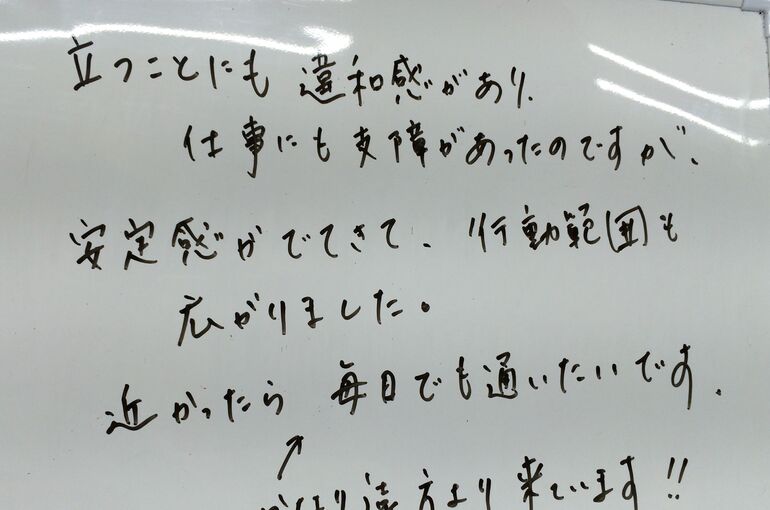 立つことにも 違和感があり、
仕事にも支障があったのですが、
安定感がでてきて、行動範囲も
広がりました。
近かったら 毎日でも通いたいです。
↑
かなり遠方より来ています!!